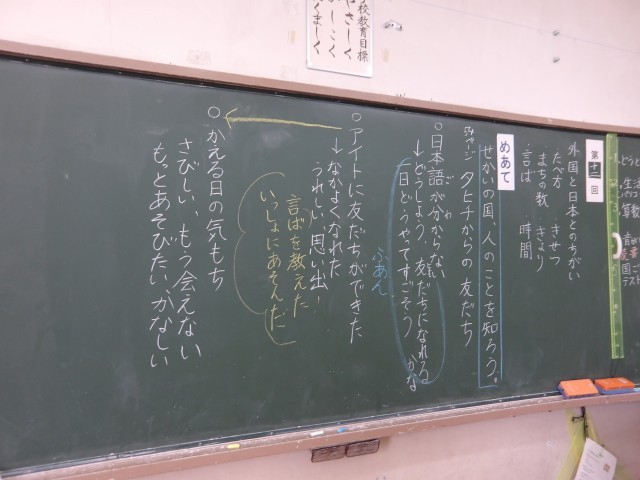 校教育目標
やさしく
かしこく
たくましく
第十二回
外国と日本とのちがい
たべ方 きせつ
まちの数 きょり
言は 時間
めあて
せかいの国、人のことを知ろう。
タヒチからの友だち
○日本語が分からない
→どうしよう、友だちになれる
かな
一日どうやってすごそう
ふあん
○アイトに友だちができた
→なかよくなれた
うれしい思い出!
言ばを教えた
いっしょにあそんだ
○かえる日の気もち
さびしい、もう会えない
もっとあそびたい、かなしい